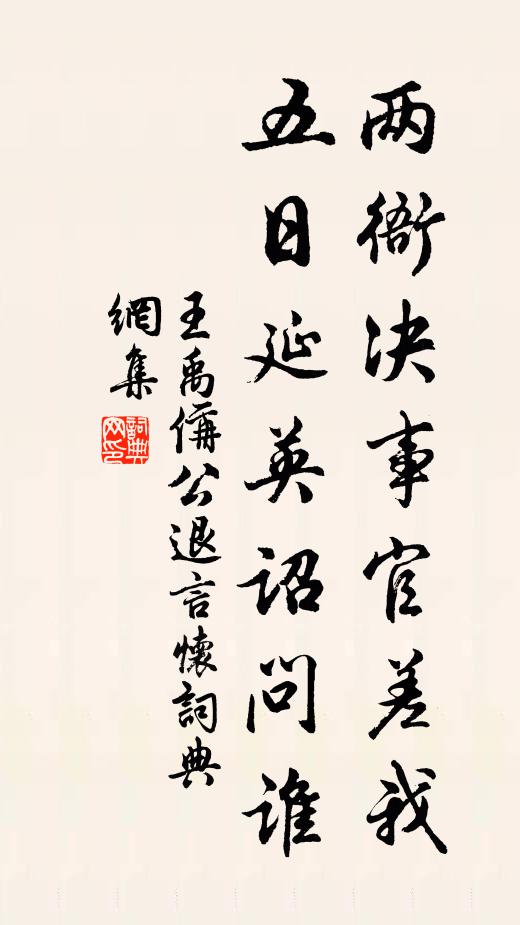 两衙决事官差我
五日延英诏问谁
王禹偁公退言懷詞典
網集
詞典
网印